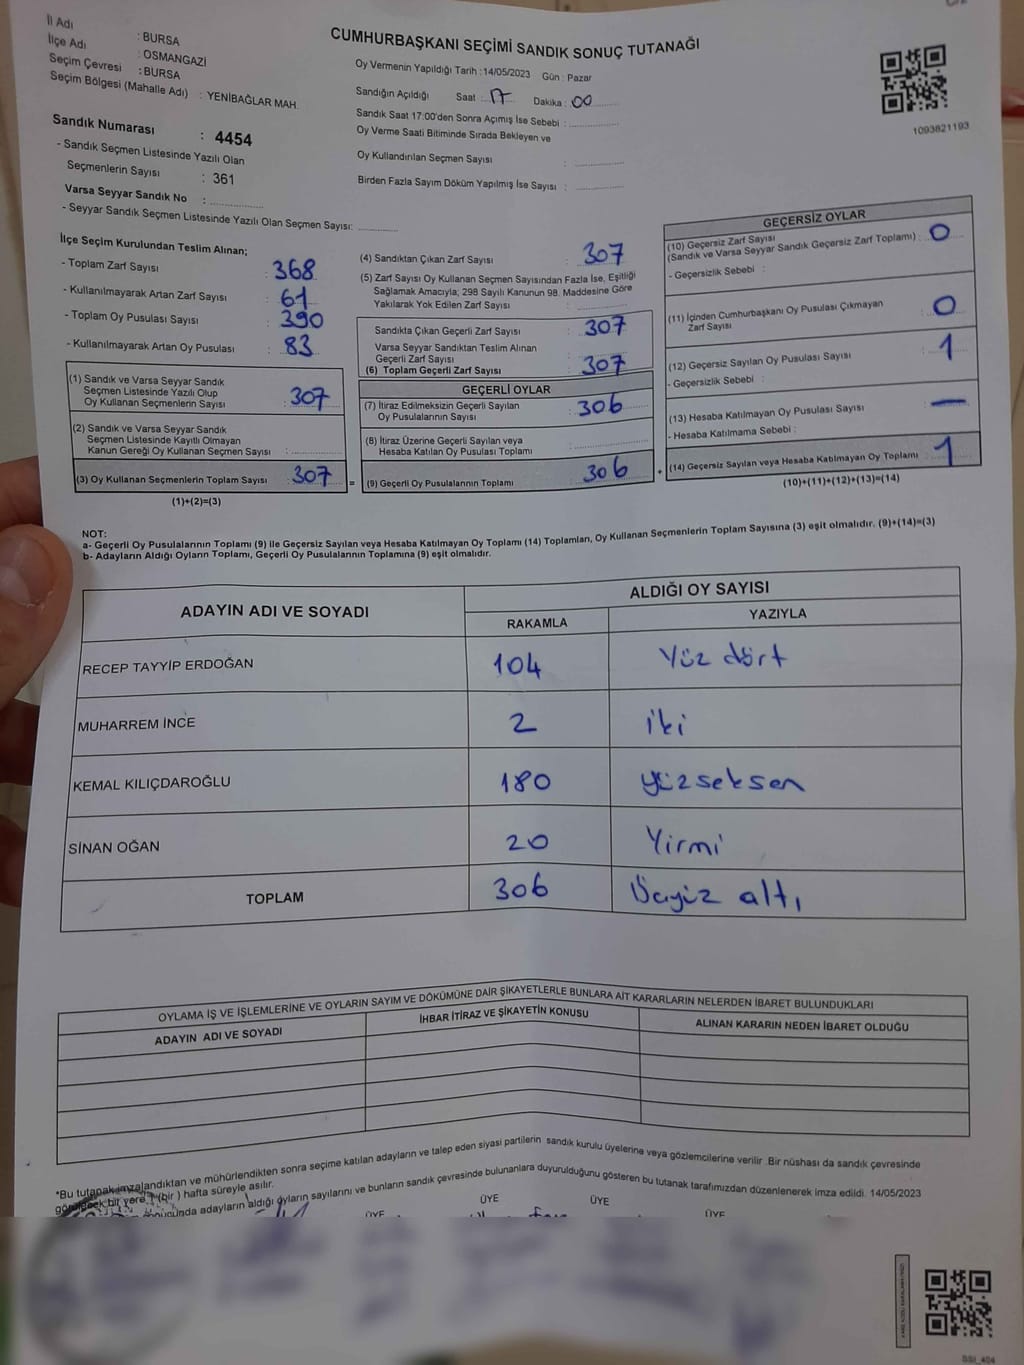 İl Adı : BURSA
İlçe Adı : OSMANGAZİ
Seçim Çevresi : BURSA
Seçim Bölgesi (Mahalle Adı) : YENİBAĞLAR MAH.
Sandık Numarası : 4454
- Sandık Seçmen Listesinde Yazılı Olan
Seçmenlerin Sayısı : 361
Varsa Seyyar Sandık No :
- Seyyar Sandık Seçmen Listesinde Yazılı Olan Seçmen Sayısı:
CUMHURBAŞKANI SEÇİMİ SANDIK SONUÇ TUTANAĞI
Oy Vermenin Yapıldığı Tarih : 14/05/2023 Gün : Pazar
Sandığın Açıldığı Saat : 17 Dakika : 00
Sandık Saat 17:00'den Sonra Açımış İse Sebebi :
Oy Verme Saati Bitiminde Sırada Bekleyen ve
Oy Kullandırılan Seçmen Sayısı :
Birden Fazla Sayım Döküm Yapılmış İse Sayısı :
1093821193
İlçe Seçim Kurulundan Teslim Alınan;
- Toplam Zarf Sayısı : 368
- Kullanılmayarak Artan Zarf Sayısı : 61
- Toplam Oy Pusulası Sayısı : 390
- Kullanılmayarak Artan Oy Pusulası : 83
(1) Sandık ve Varsa Seyyar Sandık
Seçmen Listesinde Yazılı Olup
Oy Kullanan Seçmenlerin Sayısı : 307
(2) Sandık ve Varsa Seyyar Sandık
Seçmen Listesinde Kayıtlı Olmayan
Kanun Gereği Oy Kullanan Seçmen Sayısı :
(3) Oy Kullanan Seçmenlerin Toplam Sayısı : 307
(1)+(2)=(3)
=
(4) Sandıktan Çıkan Zarf Sayısı : 307
(5) Zarf Sayısı Oy Kullanan Seçmen Sayısından Fazla İse, Eşitliği
Sağlamak Amacıyla; 298 Sayılı Kanunun 98. Maddesine Göre
Yakılarak Yok Edilen Zarf Sayısı :
Sandıkta Çıkan Geçerli Zarf Sayısı : 307
Varsa Seyyar Sandıktan Teslim Alınan
Geçerli Zarf Sayısı :
(6) Toplam Geçerli Zarf Sayısı : 307
GEÇERLİ OYLAR
(7) İtiraz Edilmeksizin Geçerli Sayılan
Oy Pusulalarının Sayısı : 306
(8) İtiraz Üzerine Geçerli Sayılan veya
Hesaba Katılan Oy Pusulası Toplamı :
(9) Geçerli Oy Pusulalarının Toplamı : 306
+
GEÇERSİZ OYLAR
(10) Geçersiz Zarf Sayısı
(Sandık ve Varsa Seyyar Sandık Geçersiz Zarf Toplamı) : 0
- Geçersizlik Sebebi :
(11) İçinden Cumhurbaşkanı Oy Pusulası Çıkmayan
Zarf Sayısı : 0
(12) Geçersiz Sayılan Oy Pusulası Sayısı : 1
- Geçersizlik Sebebi :
(13) Hesaba Katılmayan Oy Pusulası Sayısı : —
- Hesaba Katılmama Sebebi :
(14) Geçersiz Sayılan veya Hesaba Katılmayan Oy Toplamı : 1
(10)+(11)+(12)+(13)=(14)
NOT:
a- Geçerli Oy Pusulalarının Toplamı (9) ile Geçersiz Sayılan veya Hesaba Katılmayan Oy Toplamı (14) Toplamları, Oy Kullanan Seçmenlerin Toplam Sayısına (3) eşit olmalıdır. (9)+(14)=(3)
b- Adayların Aldığı Oyların Toplamı, Geçerli Oy Pusulalarının Toplamına (9) eşit olmalıdır.
ADAYIN ADI VE SOYADI ALDIĞI OY SAYISI
RAKAMLA YAZIYLA
RECEP TAYYİP ERDOĞAN 104 Yüz dört
MUHARREM İNCE 2 iki
KEMAL KILIÇDAROĞLU 180 yüzseksen
SİNAN OĞAN 20 Yirmi
TOPLAM 306 Üçyüz altı
OYLAMA İŞ VE İŞLEMLERİNE VE OYLARIN SAYIM VE DÖKÜMÜNE DAİR ŞİKAYETLERLE BUNLARA AİT KARARLARIN NELERDEN İBARET BULUNDUKLARI
ADAYIN ADI VE SOYADI İHBAR İTİRAZ VE ŞİKAYETİN KONUSU ALINAN KARARIN NEDEN İBARET OLDUĞU
*Bu tutanak imzalandıktan ve mühürlendikten sonra seçime katılan adayların ve talep eden siyasi partilerin sandık kurulu üyelerine veya gözlemcilerine verilir. Bir nüshası da sandık çevresinde
görülecek bir yere 1 (bir) hafta süreyle asılır.
adayların aldığı oyların sayılarını ve bunların sandık çevresinde bulunanlara duyurulduğunu gösteren bu tutanak tarafımızdan düzenlenerek imza edildi. 14/05/2023
ÜYE ÜYE ÜYE ÜYE
SSI_404